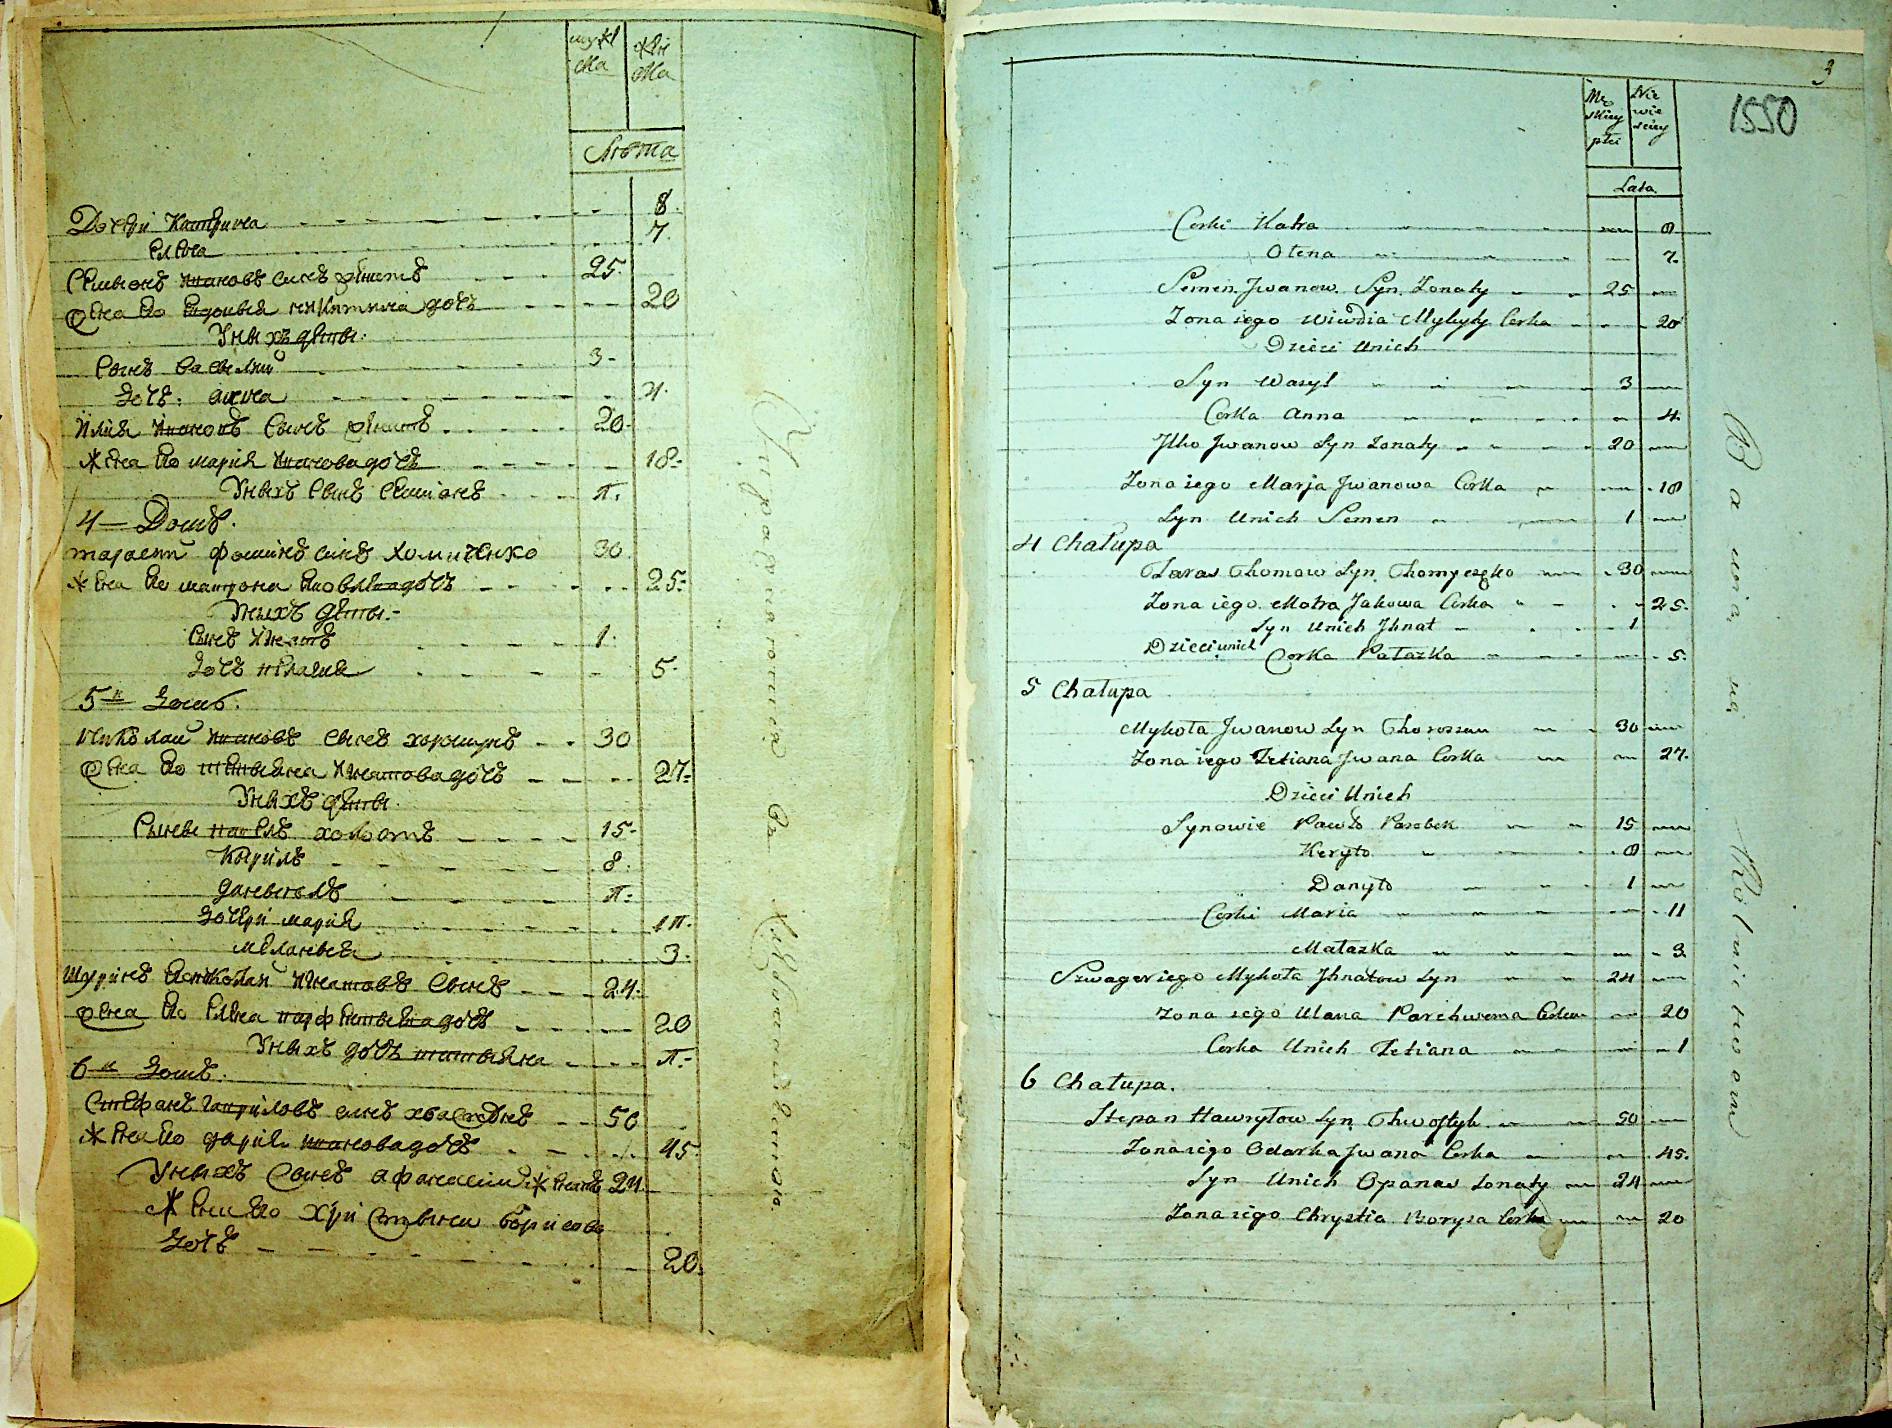 мужс ка женс ка
Лѣта
Дочери Катерина 8
Елена 7
Семионъ Ивановъ сынъ женатъ 25
Жена его Евдокия Никитина дочь 20
У нихъ дети
Сынъ Василий 3
Дочь Анна 4
Илия Ивановъ сынъ женатъ 20
Жена его Мария Иванова дочь 18
У нихъ сынъ Семионъ п.
4 Домъ.
Тарасий Фоминъ синъ Хомиченко 30
Жена его Матрона Яковлева дочь 25
У нихъ дети
Сынъ Игнатъ 1
Дочь Пелагия 5
5й Домъ.
Николай Ивановъ сынъ Хорошунъ 30
Жена его Татьяна Игнатова дочь 27
У нихъ дети
Сыны Павелъ холостъ 15
Кирилъ 8
Даниилъ п.
Дочери Мария 1п.
Меланья 3
Шуринъ его Николай Игнатовъ сынъ 24
Жена его Елена Парфентьева дочь 20
У нихъ дочь Татьяна п.
6й Домъ.
Стефанъ Гавриловъ синъ 50
Жена его Дария Иванова дочь 45
У нихъ сынъ Афанасий женатъ 24
Жена его Христина Борисова
Дочь 20
3
1550
Mę skiey płci Nie wie sciey
Lata
Corki Katra 8
Olena 7
Semen Jwanow Syn Zonaty 25
Zona iego Wiwdia Mykyty Corka 20
Dzieci Unich
Syn Wasyl 3
Corka Anna 4
Jlko Jwanow Syn Zonaty 20
Zona iego Marja Jwanowa Corka 18
Syn Unich Semen 1
4 Chałupa
Taras Chomow Syn Chomyczeko 30
Zona iego Motra Jakowa Corka 25
Syn Unich Jhnat 1
Dzieci unich Corka Pałazka 5
5 Chałupa
Mykoła Jwanow Syn Choroszun 30
Zona iego Tetiana Jwana Corka 27
Dzieci Unich
Synowie Pawło Parobek 15
Keryło 8
Danyło 1
Corki Maria 11
Małazka 3
Szwager iego Mykoła Jhnatow Syn 24
Zona iego Ulana Parchwema Corka 20
Corka Unich Tetiana 1
6 Chałupa.
Stepan Hawryłow Syn 50
Zona iego Odarka Jwana Corka 45
Syn Unich Opanas Zonaty 24
Zona iego Chrystia Borysa Corka 20